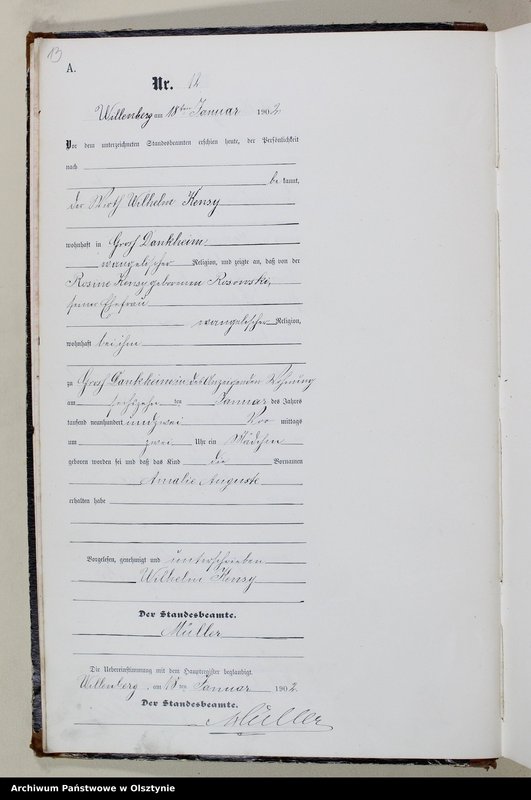 13
A.
Nr. 12
Willenberg am 18ten Januar 1902
Vor dem unterzeichneten Standesbeamten erschien heute, der Persönlichkeit
nach
be kannt,
der Wirth Wilhelm Kensy
wohnhaft in Groß Dankheim
evangelischer Religion, und zeigte an, daß von der
Rosine Kensy geborenen Rosowski,
seiner Ehefrau
evangelischer Religion,
wohnhaft bei ihm
zu Groß Dankheim in des Anzeigenden Wohnung
am sechszehn ten Januar des Jahres
tausend neunhundert und zwei Vor mittags
um zwei Uhr ein Mädchen
geboren worden sei und daß das Kind die Vornamen
Amalie Auguste
erhalten habe
Vorgelesen, genehmigt und unterschrieben
Wilhelm Kensy
Der Standesbeamte.
Müller
Die Uebereinstimmung mit dem Hauptregister beglaubigt.
Willenberg, am 18 ten Januar 1902.
Der Standesbeamte.
Müller
Archiwum Państwowe w Olsztynie